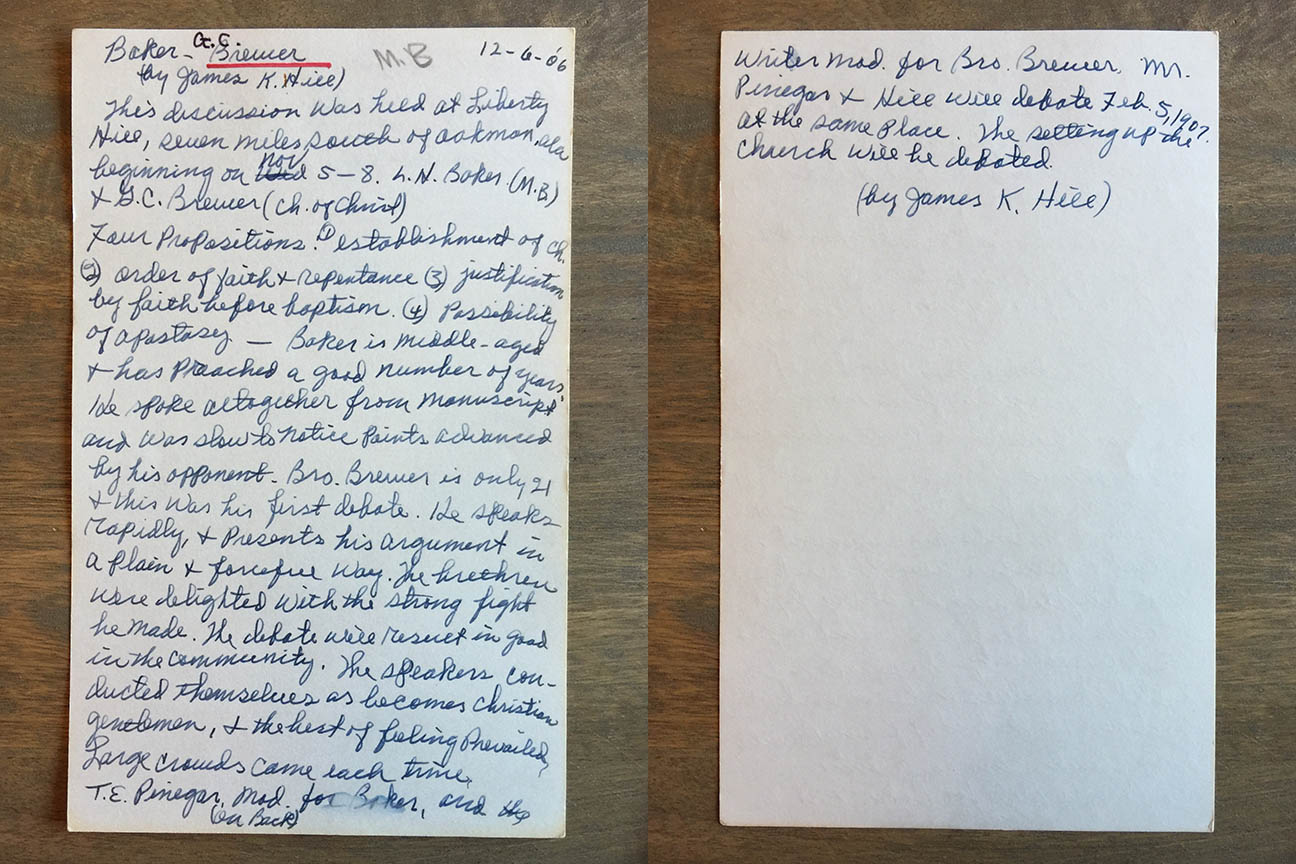 Baker - G.C. Brewer
M.B
12-6-06
(by James K. Hill)
This discussion was held at Liberty
Hill, seven miles south of Oakman, Ala
beginning on Nov 5-8. L.N. Baker (M.B)
& G.C. Brewer (Ch. of Christ)
Four Propositions. (1) establishment of Ch.
(2) order of faith & repentance (3) justification
by faith before baptism. (4) Possibility
of apostasy — Baker is middle-aged
& has Preached a good number of years.
He spoke altogether from manuscript
and was slow to notice points advanced
by his opponent. Bro. Brewer is only 21
& this was his first debate. He speaks
rapidly, & Presents his argument in
a plain & forceful way. The brethren
were delighted with the strong fight
he made. The debate will result in good
in the community. The speakers con-
ducted themselves as becomes Christian
gentlemen, & the best of feeling Prevailed,
Large crowds came each time.
T.E. Pinegar, Mod. for Baker, and the
(on Back)
Writer Mod. for Bro. Brewer. Mr.
Pinegar & Hill will debate Feb. 5, 1907.
at the same Place. The setting up the
Church will be debated.
(by James K. Hill)